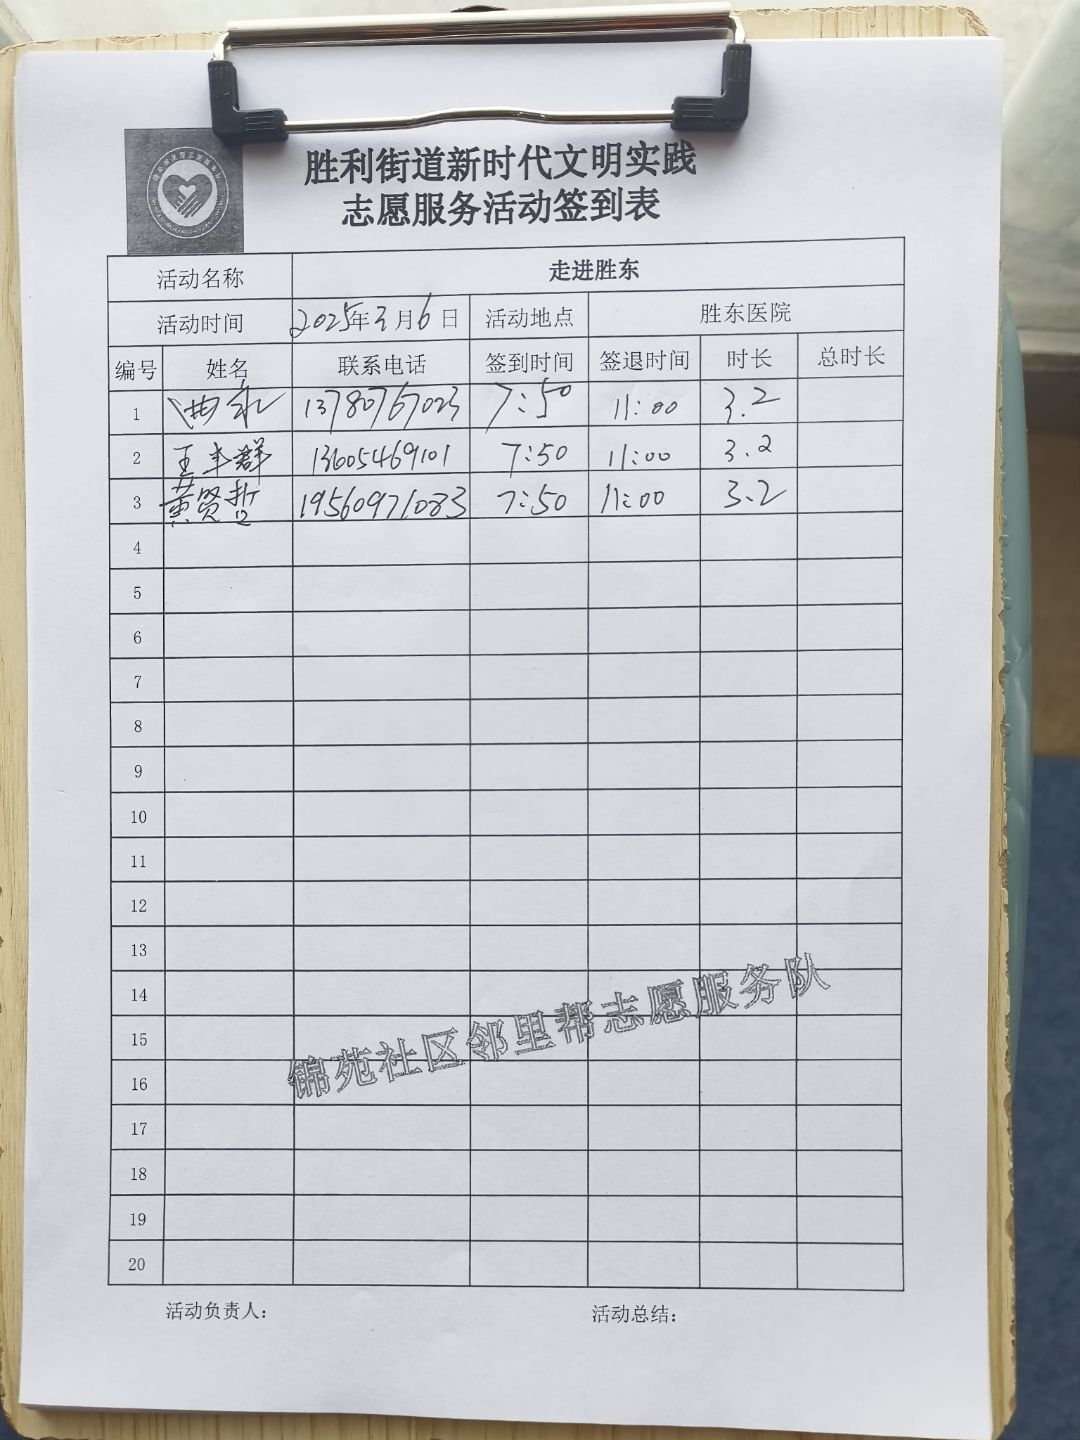 胜利街道新时代文明实践
志愿服务活动签到表
活动名称 走进胜东
活动时间 2025年3月6日 活动地点 胜东医院
编号 姓名 联系电话 签到时间 签退时间 时长 总时长
1 13780767023 7:50 11:00 3.2
2 王丰群 13605469101 7:50 11:00 3.2
3 黄贤哲 19560971083 7:50 11:00 3.2
4
5
6
7
8
9
10
11
12
13
14
15
16
17
18
19
20
锦苑社区邻里帮志愿服务队
活动负责人: 活动总结: